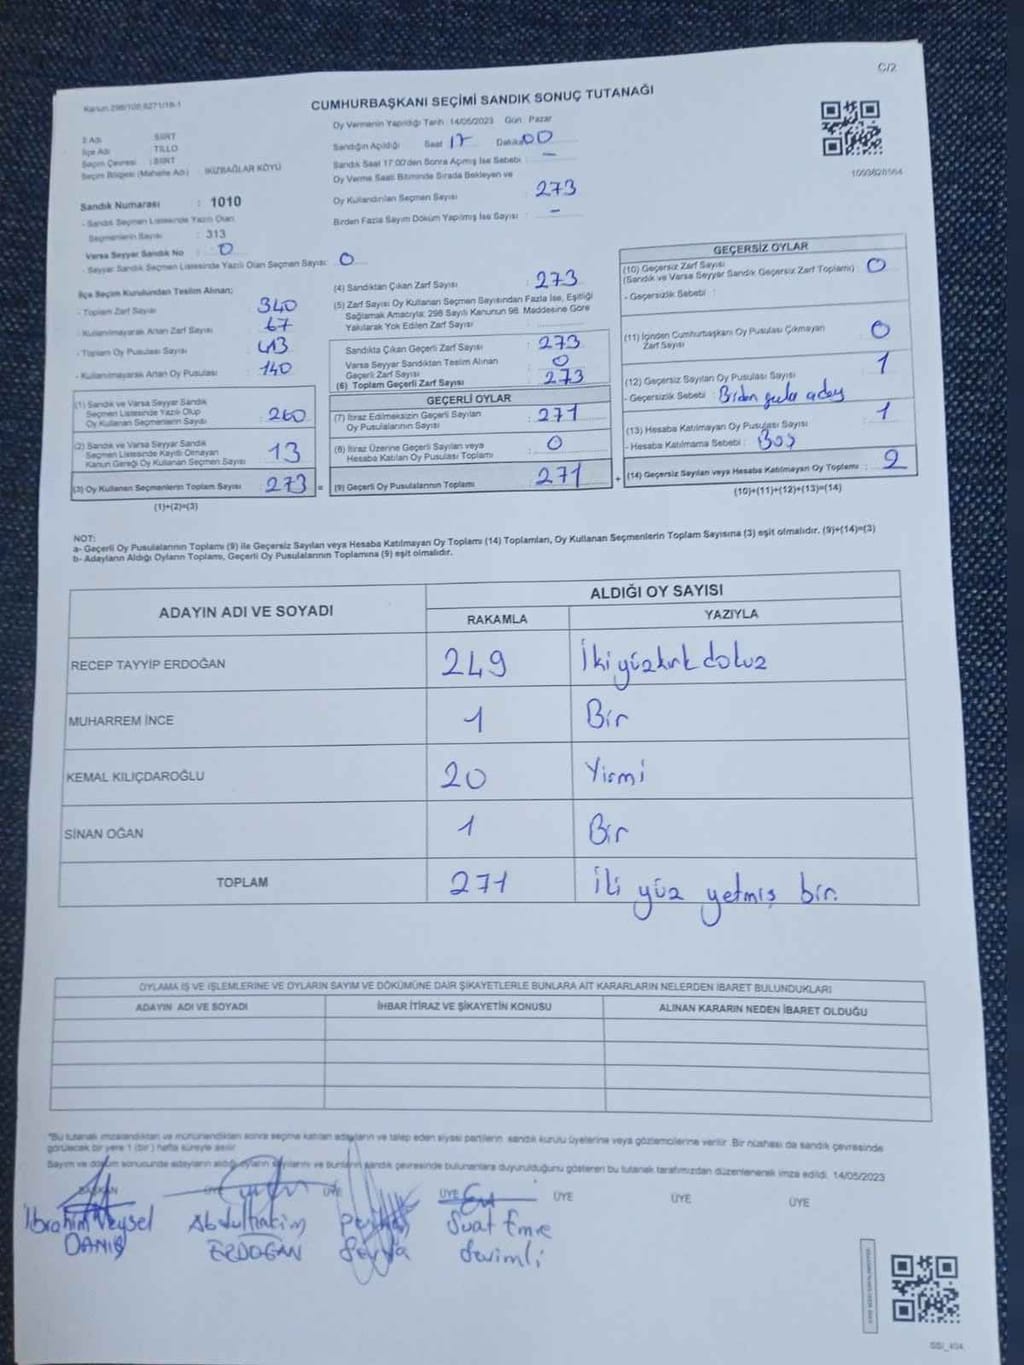 C/2
Kanun 298/105,6271/18-1
CUMHURBAŞKANI SEÇİMİ SANDIK SONUÇ TUTANAĞI
Oy Vermenin Yapıldığı Tarih : 14/05/2023 Gün : Pazar
İl Adı SİİRT
İlçe Adı TİLLO
Seçim Çevresi : SİİRT
Seçim Bölgesi (Mahalle Adı) İKİZBAĞLAR KÖYÜ
Sandığın Açıldığı Saat 17 Dakika 00
Sandık Saat 17:00'den Sonra Açılmış İse Sebebi : -
Oy Verme Saati Bitiminde Sırada Bekleyen ve
Oy Kullandırılan Seçmen Sayısı : 273
Birden Fazla Sayım Döküm Yapılmış İse Sayısı : -
Sandık Numarası : 1010
- Sandık Seçmen Listesinde Yazılı Olan
Seçmenlerin Sayısı : 313
Varsa Seyyar Sandık No : 0
- Seyyar Sandık Seçmen Listesinde Yazılı Olan Seçmen Sayısı: 0
İlçe Seçim Kurulundan Teslim Alınan;
- Toplam Zarf Sayısı 340
- Kullanılmayarak Artan Zarf Sayısı 67
- Toplam Oy Pusulası Sayısı 413
- Kullanılmayarak Artan Oy Pusulası 140
(1) Sandık ve Varsa Seyyar Sandık
Seçmen Listesinde Yazılı Olup
Oy Kullanan Seçmenlerin Sayısı : 260
(2) Sandık ve Varsa Seyyar Sandık
Seçmen Listesinde Kayıtlı Olmayan
Kanun Gereği Oy Kullanan Seçmen Sayısı 13
(3) Oy Kullanan Seçmenlerin Toplam Sayısı 273 =
(1)+(2)=(3)
(4) Sandıktan Çıkan Zarf Sayısı : 273
(5) Zarf Sayısı Oy Kullanan Seçmen Sayısından Fazla İse, Eşitliği
Sağlamak Amacıyla; 298 Sayılı Kanunun 98. Maddesine Göre
Yakılarak Yok Edilen Zarf Sayısı :
Sandıkta Çıkan Geçerli Zarf Sayısı : 273
Varsa Seyyar Sandıktan Teslim Alınan
Geçerli Zarf Sayısı : 0
(6) Toplam Geçerli Zarf Sayısı : 273
GEÇERLİ OYLAR
(7) İtiraz Edilmeksizin Geçerli Sayılan
Oy Pusulalarının Sayısı : 271
(8) İtiraz Üzerine Geçerli Sayılan veya
Hesaba Katılan Oy Pusulası Toplamı : 0
(9) Geçerli Oy Pusulalarının Toplamı : 271 +
GEÇERSİZ OYLAR
(10) Geçersiz Zarf Sayısı
(Sandık ve Varsa Seyyar Sandık Geçersiz Zarf Toplamı) : 0
- Geçersizlik Sebebi :
(11) İçinden Cumhurbaşkanı Oy Pusulası Çıkmayan
Zarf Sayısı : 0
(12) Geçersiz Sayılan Oy Pusulası Sayısı : 1
- Geçersizlik Sebebi : Birden aday
(13) Hesaba Katılmayan Oy Pusulası Sayısı : 1
- Hesaba Katılmama Sebebi : Boş
(14) Geçersiz Sayılan veya Hesaba Katılmayan Oy Toplamı : 2
(10)+(11)+(12)+(13)=(14)
NOT:
a- Geçerli Oy Pusulalarının Toplamı (9) ile Geçersiz Sayılan veya Hesaba Katılmayan Oy Toplamı (14) Toplamları, Oy Kullanan Seçmenlerin Toplam Sayısına (3) eşit olmalıdır. (9)+(14)=(3)
b- Adayların Aldığı Oyların Toplamı, Geçerli Oy Pusulalarının Toplamına (9) eşit olmalıdır.
ADAYIN ADI VE SOYADI ALDIĞI OY SAYISI
RAKAMLA YAZIYLA
RECEP TAYYİP ERDOĞAN 249 İki yüz kırk dokuz
MUHARREM İNCE 1 Bir
KEMAL KILIÇDAROĞLU 20 Yirmi
SİNAN OĞAN 1 Bir
TOPLAM 271 İki yüz yetmiş bir.
OYLAMA İŞ VE İŞLEMLERİNE VE OYLARIN SAYIM VE DÖKÜMÜNE DAİR ŞİKAYETLERLE BUNLARA AİT KARARLARIN NELERDEN İBARET BULUNDUKLARI
ADAYIN ADI VE SOYADI İHBAR İTİRAZ VE ŞİKAYETİN KONUSU ALINAN KARARIN NEDEN İBARET OLDUĞU
*Bu tutanak imzalandıktan ve mühürlendikten sonra seçime katılan adayların ve talep eden siyasi partilerin sandık kurulu üyelerine veya gözlemcilerine verilir. Bir nüshası da sandık çevresinde
görülecek bir yere 1 (bir) hafta süreyle asılır.
Sayım ve döküm sonucunda adayların aldığı oyların sayılarını ve bunların sandık çevresinde bulunanlara duyurulduğunu gösteren bu tutanak tarafımızdan düzenlenerek imza edildi. 14/05/2023
BAŞKAN ÜYE ÜYE ÜYE ÜYE ÜYE ÜYE
İbrahim Veysel Abdulhakim Suat Emre
DANIŞ ERDOĞAN Sevimli